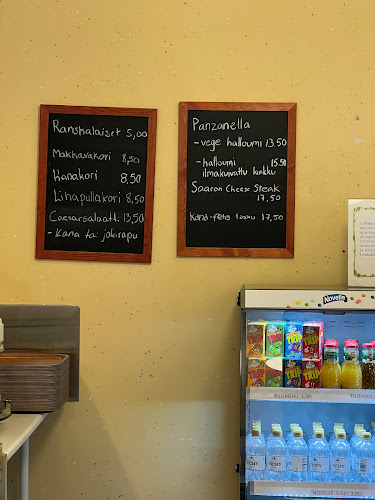 Ranskalaiset 5,00
Makkarakori 8,50
Kanakori 8,50
Lihapullakori 8,50
Caesarsalaatti 13,50
- Kana tai jokirapu
Panzanella
- vege halloumi 13.50
- halloumi 15.50
ilmakuivattu kinkku
Saaran Cheese Steak
17,50
Kana-feta lasku 17,50
Novelle
TRIP
TRIP
TRIP
NOVELLE